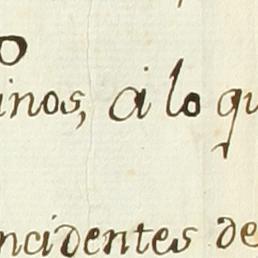 o
inos, á lo qu
ncidentes de